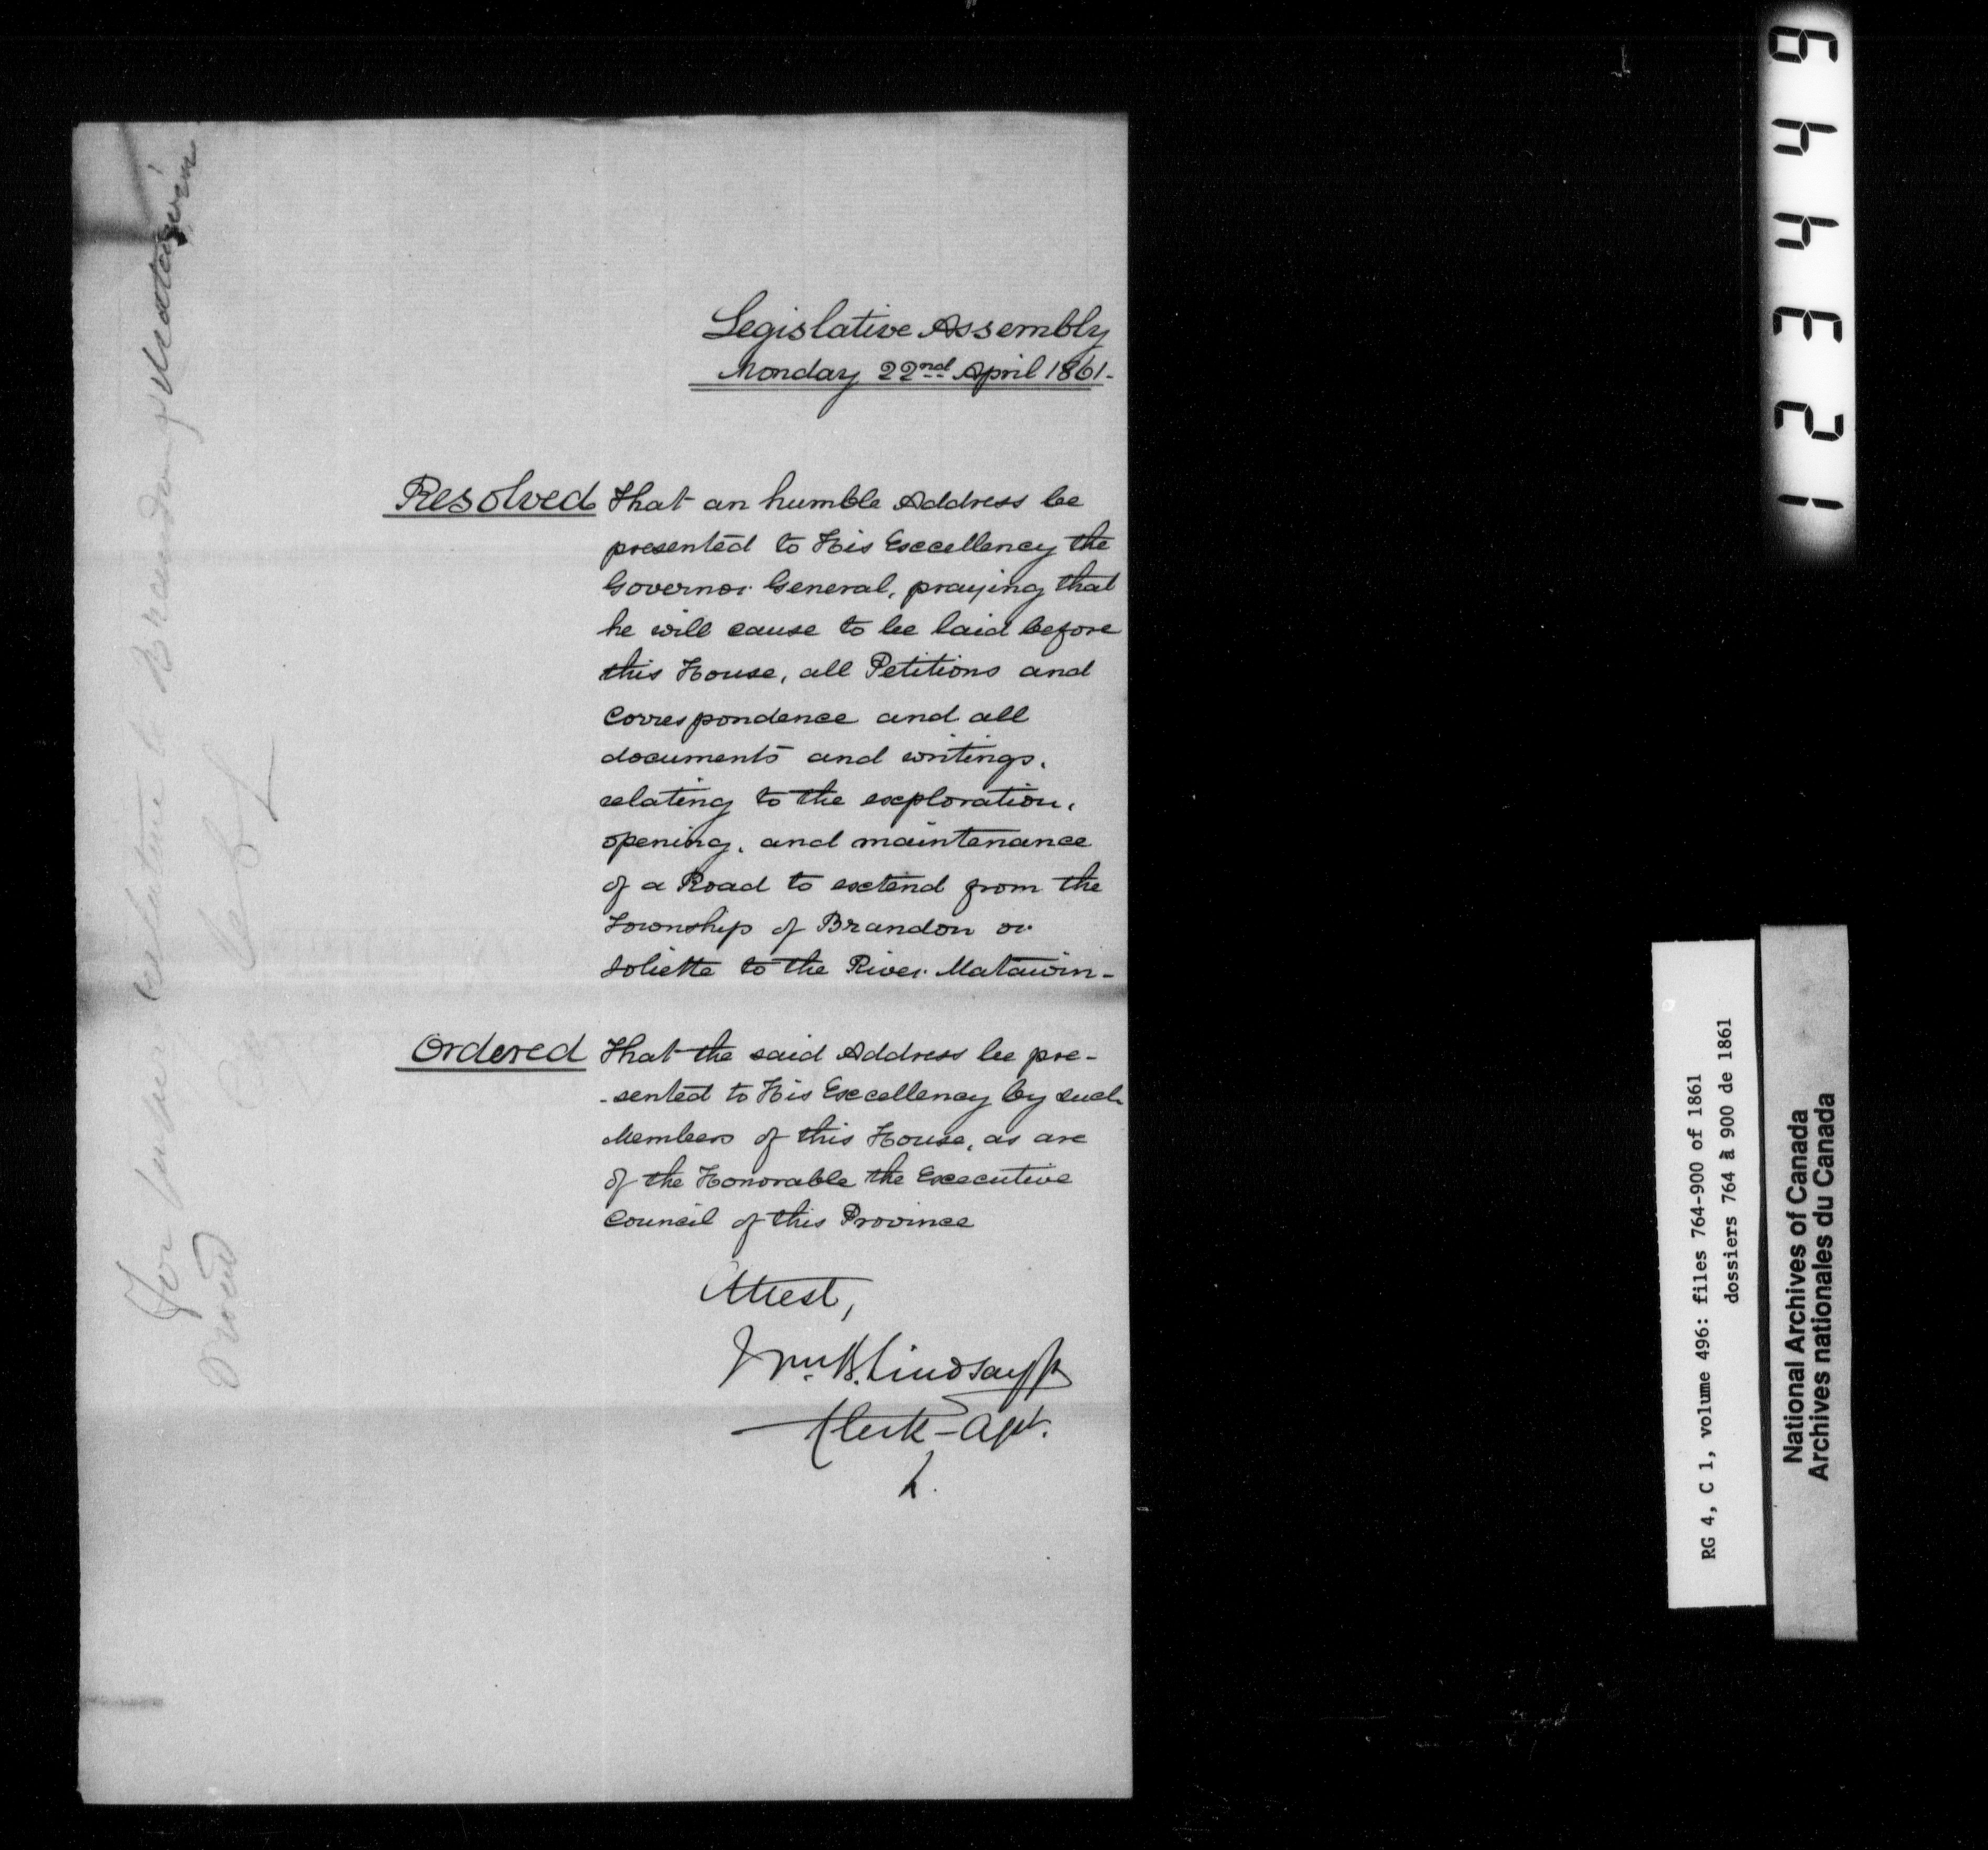 Legislative Assembly
Monday 22nd April 1861-
Resolved That an humble Address be
presented to His Excellency the
Governor General, praying that
he will cause to be laid before
this House, all Petitions and
Correspondence and all
documents and writings,
relating to the exploration,
opening, and maintenance
of a Road to extend from the
Township of Brandon or
Joliette to the River Matawin-
Ordered That the said Address be pre-
-sented to His Excellency by such
Members of this House, as are
of the Honorable the Executive
Council of this Province
Attest,
Wm. B. Lindsay Jr
Clerk-Asst.
For
relative to Brandon & Matawin
RG 4, C 1, volume 496: files 764-900 of 1861
dossiers 764 à 900 de 1861
National Archives of Canada
Archives nationales du Canada
123449